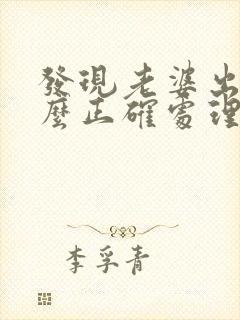 發現老婆出
麼正確處理
李孚青